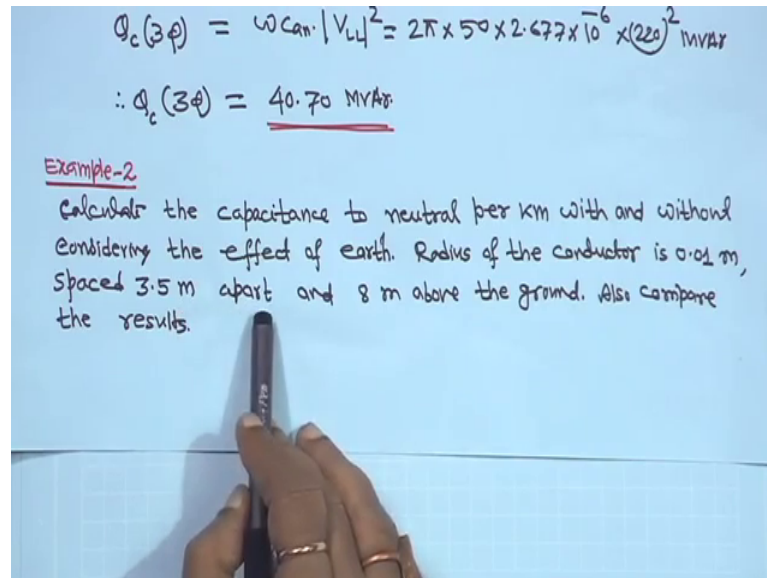 Qc(3φ) = ωCan.|VLL|² = 2π×50×2.677×10⁻⁶×(220)² MVAr
∴ Qc(3φ) = 40.70 MVAr.
Example-2
Calculate the capacitance to neutral per km with and without
considering the effect of earth. Radius of the conductor is 0.01 m,
spaced 3.5 m apart and 8 m above the ground. Also compare
the results.